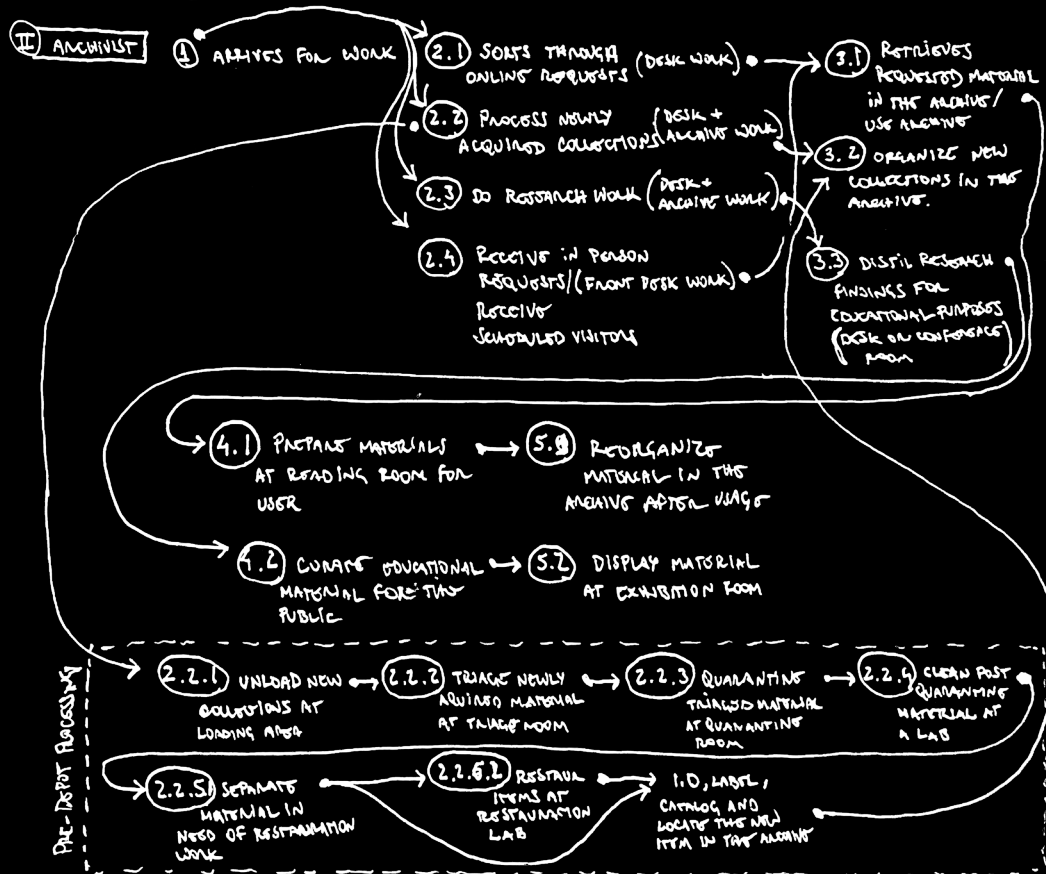 II ARCHIVIST
1 ARRIVES FOR WORK
2.1 SORTS THROUGH
ONLINE REQUESTS (DESK WORK)
2.2 PROCESS NEWLY
ACQUIRED COLLECTIONS (DESK + ARCHIVE WORK)
2.3 DO RESEARCH WORK (DESK + ARCHIVE WORK)
2.4 RECEIVE IN PERSON
REQUESTS/ (FRONT DESK WORK)
RECEIVE
SCHEDULED VISITORS
3.1 RETRIEVES
REQUESTED MATERIAL
IN THE ARCHIVE/
USE ARCHIVE
3.2 ORGANIZE NEW
COLLECTIONS IN THE
ARCHIVE.
3.3 DISTIL RESEARCH
FINDINGS FOR
EDUCATIONAL PURPOSES
(DESK OR CONFERENCE
ROOM)
4.1 PREPARE MATERIALS
AT READING ROOM FOR
USER
5.1 REORGANIZE
MATERIAL IN THE
ARCHIVE AFTER USAGE
4.2 CURATE EDUCATIONAL
MATERIAL FOR THE
PUBLIC
5.2 DISPLAY MATERIAL
AT EXHIBITION ROOM
PRE-DEPOT PROCESSING
2.2.1 UNLOAD NEW
COLLECTIONS AT
LOADING AREA
2.2.2 TRIAGE NEWLY
AQUIRED MATERIAL
AT TRIAGE ROOM
2.2.3 QUARANTINE
TRIAGED MATERIAL
AT QUARANTINE
ROOM
2.2.4 CLEAN POST
QUARANTINE
MATERIAL AT
A LAB
2.2.5.1 SEPARATE
MATERIAL IN
NEED OF RESTAURATION
WORK
2.2.5.2 RESTAUR
ITEMS AT
RESTAURATION
LAB
I.D, LABEL,
CATALOG AND
LOCATE THE NEW
ITEM IN THE ARCHIVE